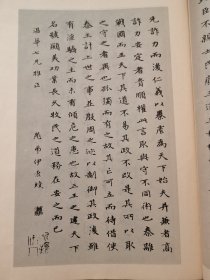 先詐力而後仁義以暴虐為天下始夫并兼者高
詐力安定者貴順權此言取與守不同術也秦離
戰國而王天下其道不易其政不改是其所以取
之守之者異也孤獨而有之故其亡可立而待借使
秦王計上世之事並殷周之迹以制御其政後雖
有淫驕之主而未有傾危之患也故三王之建天下
名號顯美功業長久牧民之道務在安之而已
七兄雅正
愚弟伊